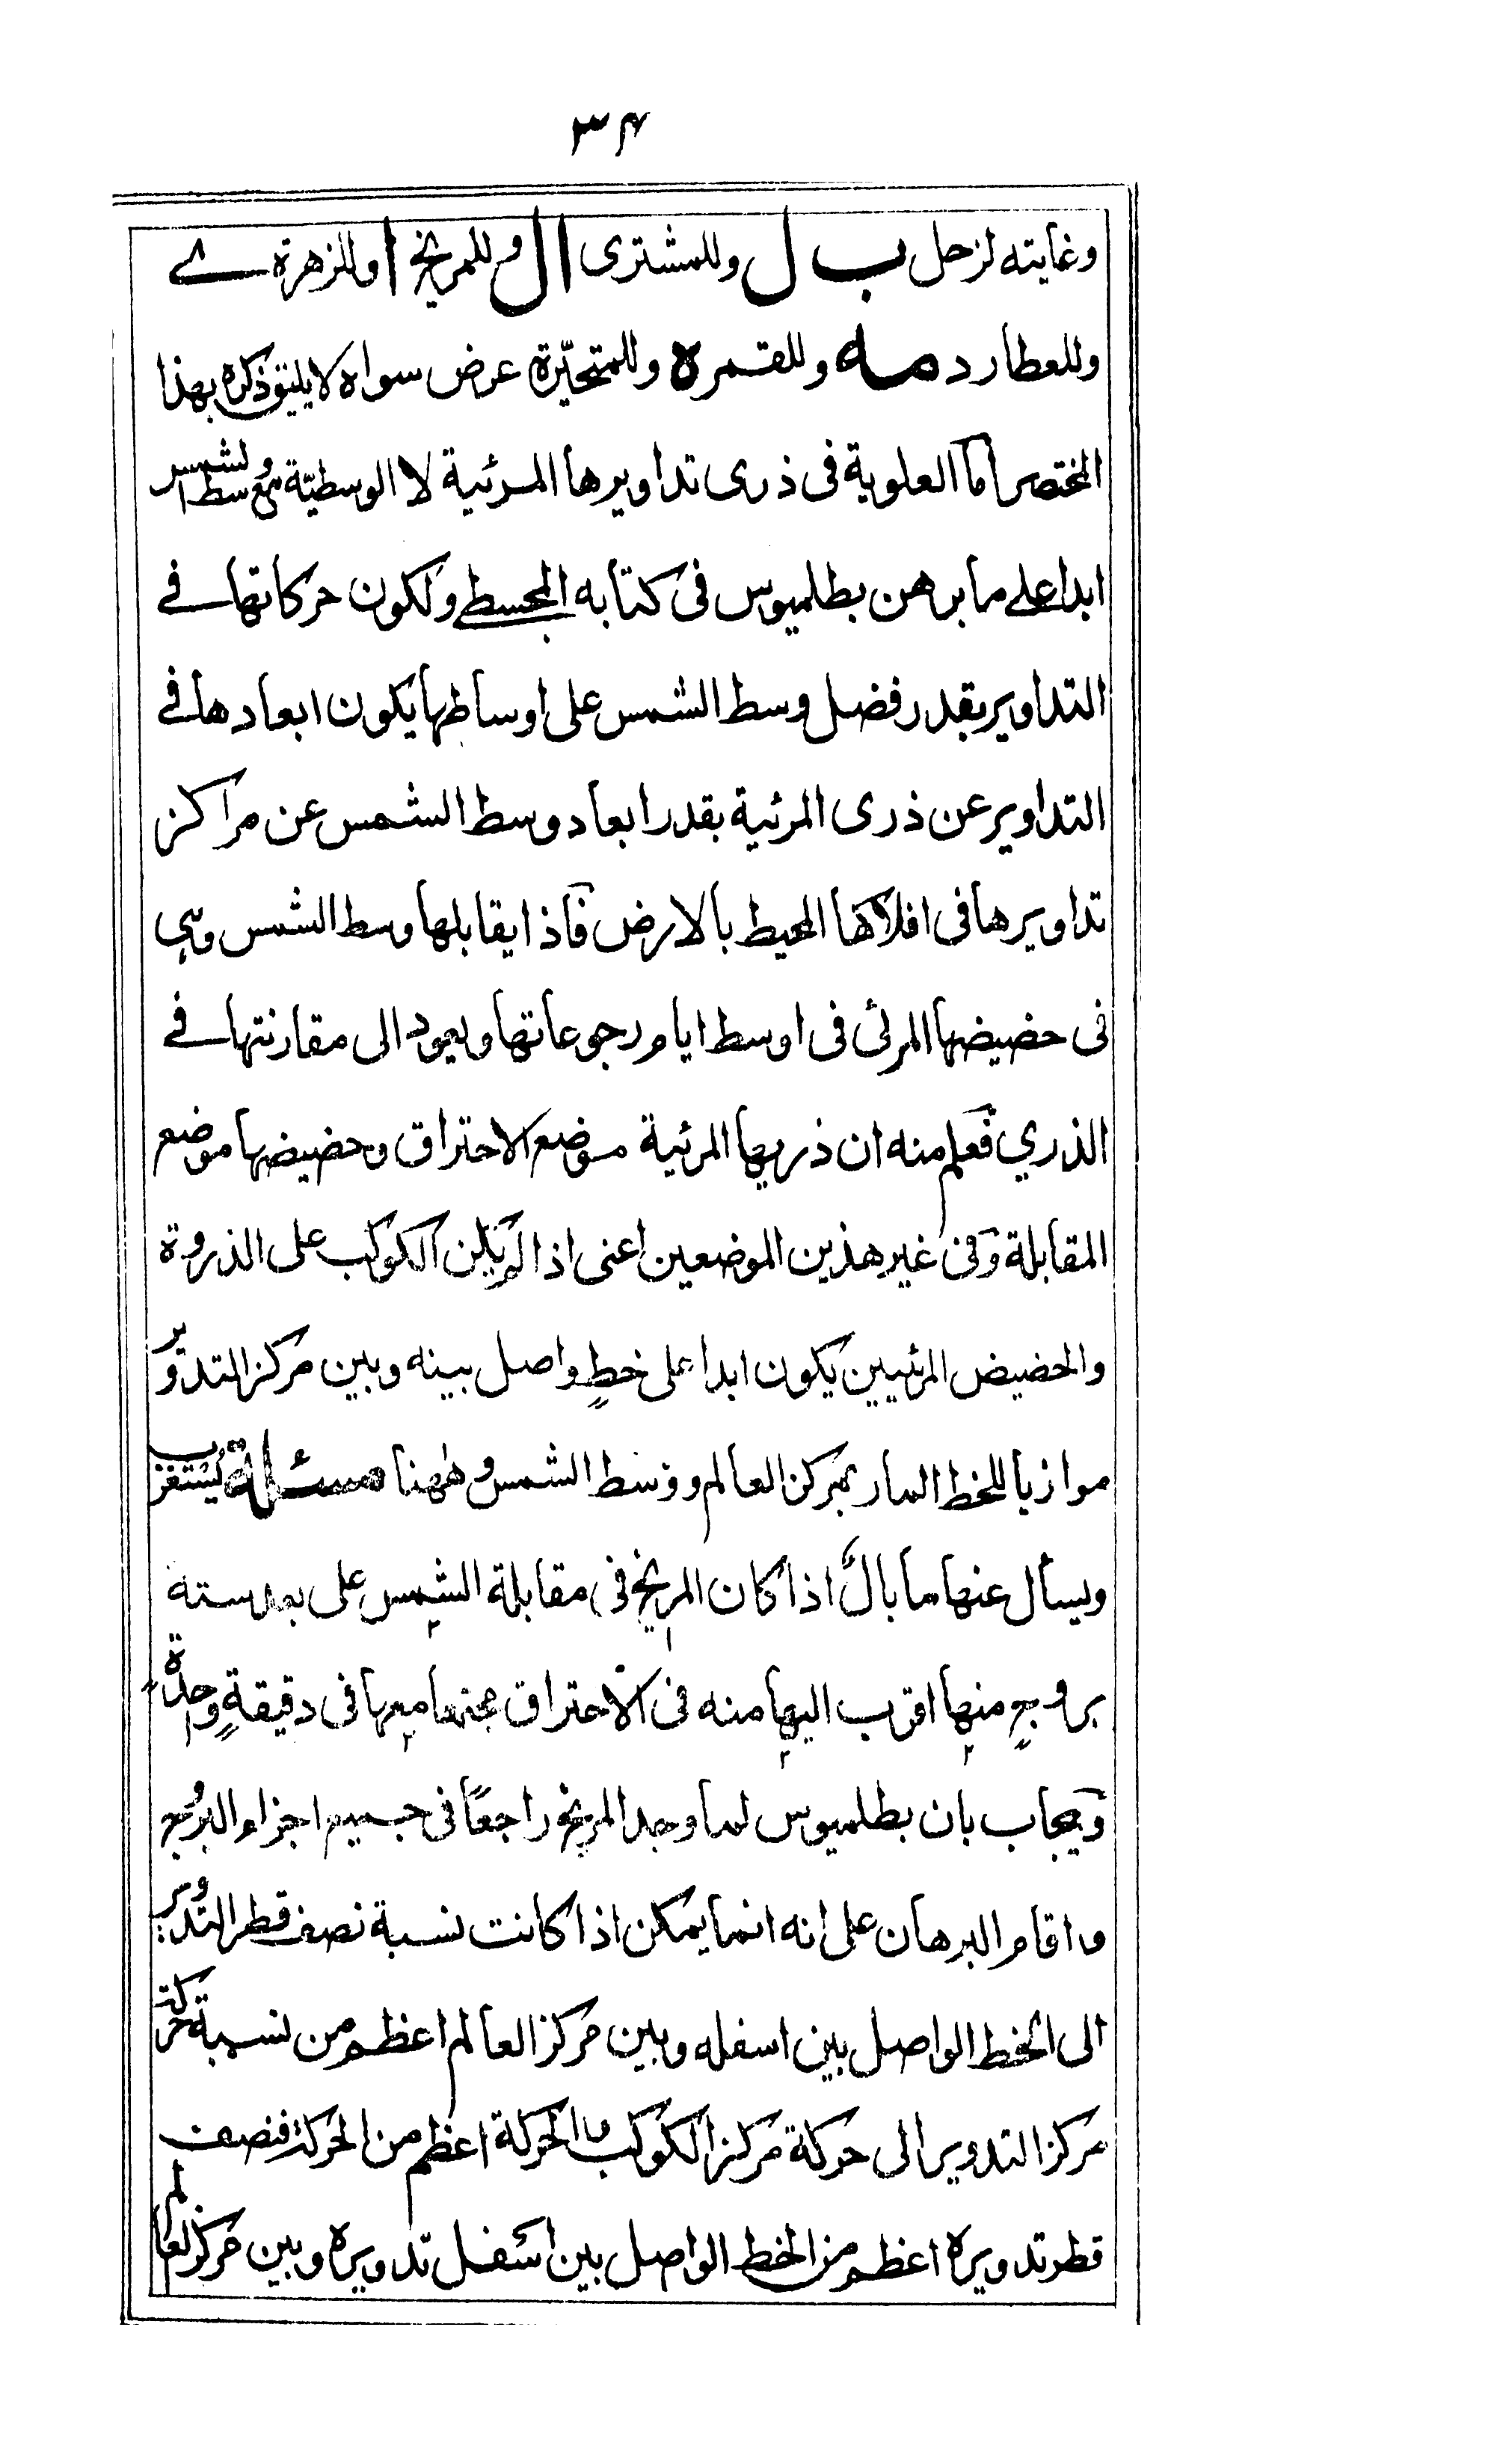 ٣٤
وغايته لزحل ب ل وللمشترى ا ل وللمريخ ا وللزهرة ى
وللعطارد مه وللقمر ه وللمتحيّرة عرض سواه لا يليق ذكره بهذا
المختصر اما العلوية فى ذرى تداويرها المرئية لا الوسطيّة مع وسط الشمس
ابدا على ما برهن بطلميوس فى كتابه المجسطى ولكون حركاتها فى
التداوير بقدر فضل وسط الشمس على اوساطها يكون ابعادها فى
التداوير عن ذرى المرئية بقدر ابعاد وسط الشمس عن مراكز
تداويرها فى افلاكها المحيط بالارض فاذا يقابلها وسط الشمس وهى
فى حضيضها المرئى فى اوسط ايام رجوعاتها ويعود الى مقارنتها فى
الذرى فعلم منه ان ذريها المرئية موضع الاحتراق وحضيضها موضع
المقابلة وفى غير هذين الموضعين اعنى اذا لم يكن الكوكب على الذروة
والحضيض المرئيين يكون ابدا على خطٍ واصل بينه وبين مركز التدوير
موازيا للخط المار بمركز العالم ووسط الشمس وههنا مسئلة يستغرب
ويسأل عنها ما بالُ اذا كان المريخ فى مقابلة الشمس على بعد ستة
بروجٍ منها اقرب اليها منه فى الاحتراق مجتمعا معها فى دقيقةٍ واحدةٍ
ويجاب بان بطلميوس لما وجد المريخ راجعًا فى جميع اجزاء البروج
واقام البرهان على انه انما يمكن اذا كانت نسبة نصف قطر التدوير
الى الخط الواصل بين اسفله وبين مركز العالم اعظم من نسبة حركة
مركز التدوير الى حركة مركز الكوكب والحركة اعظم من الحركة فنصف
قطر تدويره اعظم من الخط الواصل بين اسفل تدويره وبين مركز العالم